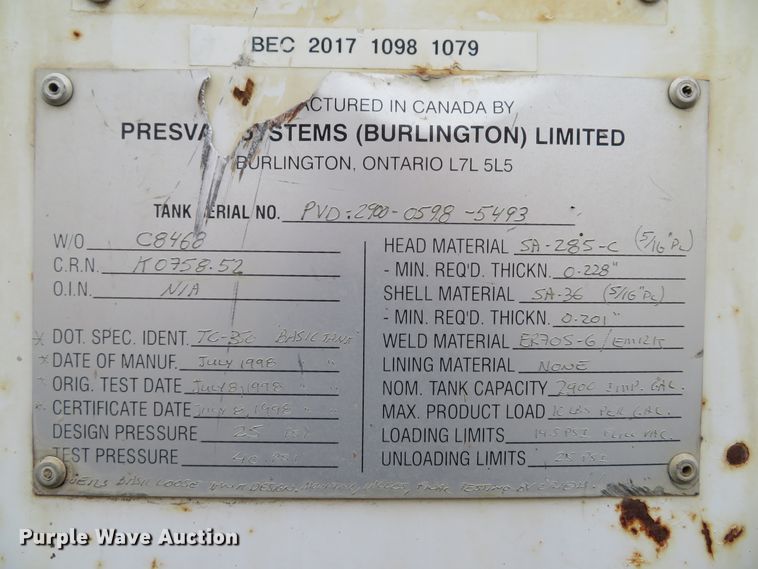 BEC 2017 1098 1079
ACTURED IN CANADA BY
PRESVA SYSTEMS (BURLINGTON) LIMITED
BURLINGTON, ONTARIO L7L 5L5
TANK ERIAL NO. PVD:2900-0598-5493
W/O C8468
C.R.N. K0758.52
O.I.N. N/A
DOT. SPEC. IDENT. TC-350 BASIC TANK
DATE OF MANUF. JULY 1998
ORIG. TEST DATE JULY 8, 1998
CERTIFICATE DATE JULY 8, 1998
DESIGN PRESSURE 25 PSI
TEST PRESSURE 40 PSI
HEAD MATERIAL SA-285-C (5/16" PL)
- MIN. REQ'D. THICKN. 0.228"
SHELL MATERIAL SA-36 (5/16" PL)
- MIN. REQ'D. THICKN. 0.201"
WELD MATERIAL ER70S-6/EM12K
LINING MATERIAL NONE
NOM. TANK CAPACITY 2900 IMP. GAL.
MAX. PRODUCT LOAD 10 LBS PER GAL.
LOADING LIMITS 14.5 PSI FULL VAC.
UNLOADING LIMITS 25 PSI
BASIC LOOSE TANK DESIGN, TESTING
Purple Wave Auction